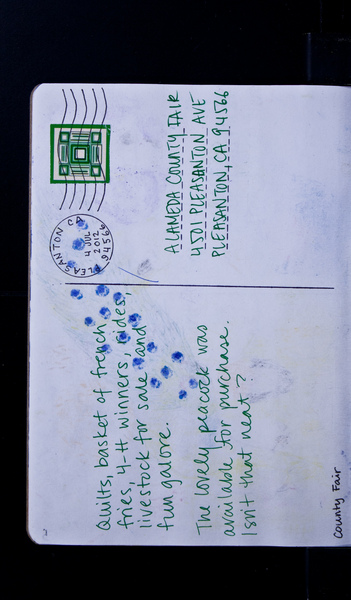 Quilts, basket of french
fries, 4-H winners, rides,
livestock for sale and
fun galore.
The lovely peacock was
available for purchase.
Isn't that neat?
PLEASANTON CA
4 JUL
2012
94566
ALAMEDA COUNTY FAIR
4501 PLEASANTON AVE
PLEASANTON, CA 94566
County Fair